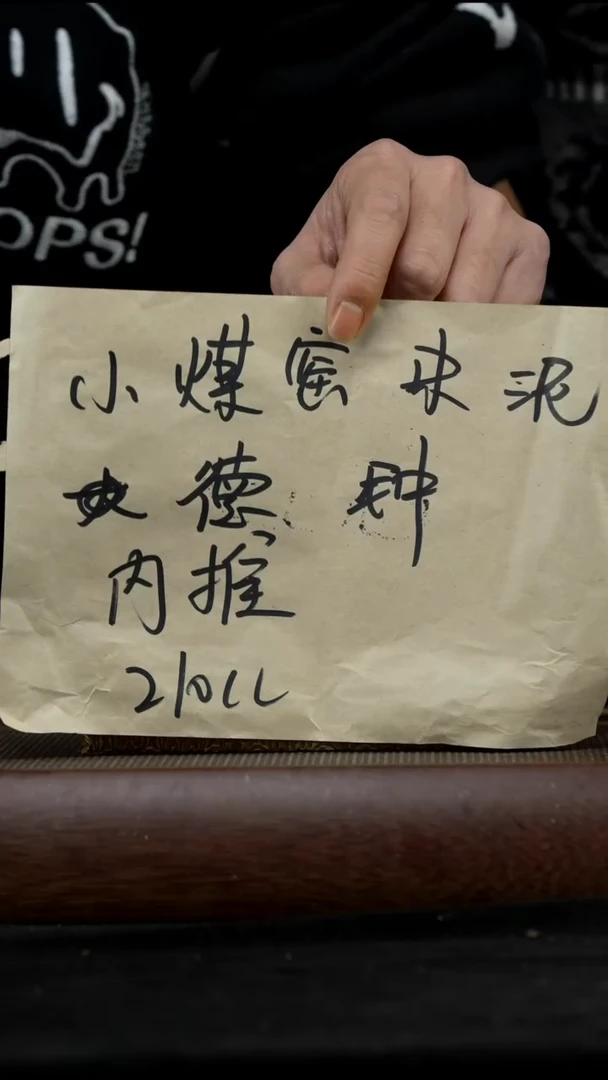 OPS!
小煤窑 朱泥
德 钟
内推
210CC